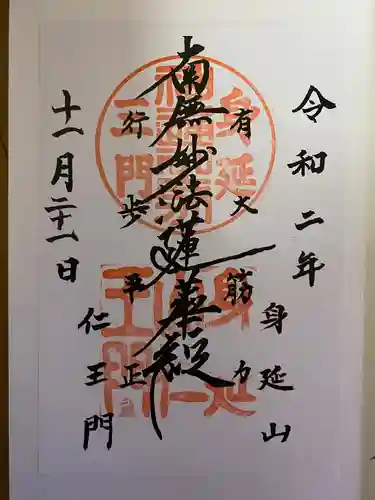 令和二年
身延山
有大筋力
南無妙法蓮華経
行歩平正
仁王門
十一月二十一日
身延
王門